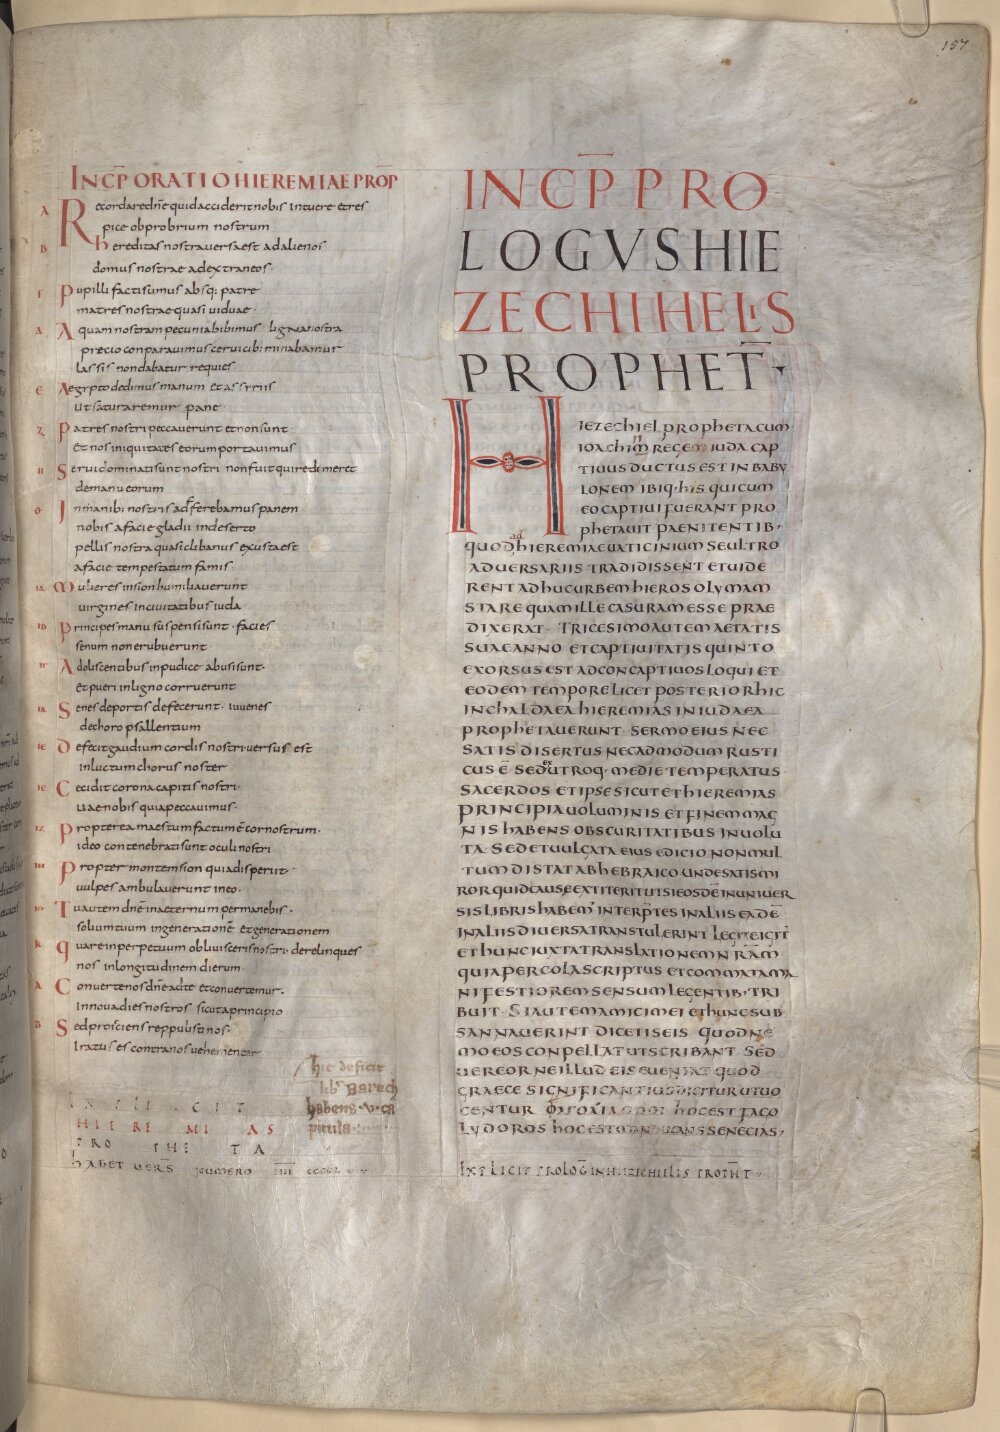 157
INCP̄ ORATIO HIEREMIAE PROP̄
A Recordare dn̄e quid acciderit nobis intuere et res
pice obprobrium nostrum
B hereditas nostra versa est ad alienos
domus nostrae ad extraneos
Γ Pupilli facti sumus absq; patre
matres nostrae quasi viduae·
Δ Aquam nostram pecunia bibimus ligna nostra
precio conparavimus cervicib; minabamur
lassis non dabatur requies
E Aegypto dedimus manum et assyriis
ut saturaremur pane
Z Patres nostri peccaverunt et non sunt·
et nos iniquitates eorum portavimus
H Servi dominati sunt nostri non fuit qui redimeret
de manu eorum
O In manib; nostris adferebamus panem
nobis a facie gladii in deserto
pellis nostra quasi clibanus exusta est
a facie tempestatum famis
IA Mulieres in sion humiliaverunt
virgines in civitatibus iuda
IB Principes manu suspensi sunt· facies
senum non erubuerunt·
Adoliscentibus inpudice abusi sunt·
et pueri in ligno corruerunt
Senes de portis defecerunt· iuvenes
de choro psallentium
Defecit gaudium cordis nostri versus est
in luctum chorus noster
Cecidit corona capitis nostri·
vae nobis quia peccavimus·
IZ Propterea maestum factum ē cor nostrum·
ideo contenebrati sunt oculi nostri
Propter montem sion quia disperiit·
vulpes ambulaverunt in eo·
Tu autem dn̄e in aeternum permanebis·
solium tuum in generationē et generationem
K Quare in perpetuum oblivisceris nostri· derelinques
nos in longitudinem dierum·
A Converte nos dn̄e ad te et convertemur·
innova dies nostros sicut a principio
B Sed proiciens reppulisti nos·
Iratus es contra nos vehementer
hic deficit
lib̄ Baruch
habens ·v· ca
pitula
EXPLICIT
HIEREMIAS
PROPHETA
habet vers̄ numero IIII
INCP̄ PRO
LOGVS HIE
ZECHIHELIS
PROPHET̄
HIEZECHIEL PROPHETA CUM
IOACHIM REGEM IUDA CAP
TIUUS DUCTUS EST IN BABY
LONEM IBIQ· HIS QUI CUM
EO CAPTIUI FUERANT PRO
PHETAUIT PAENITENTIB;
QUOD AD HIEREMIAE UATICINIUM SE ULTRO
ADUERSARIIS TRADIDISSENT ET UIDE
RENT ADHUC URBEM HIEROSOLYMAM
STARE QUAM ILLE CASURAM ESSE PRAE
DIXERAT· TRICESIMO AUTEM AETATIS
SUAE ANNO ET CAPTIUITATIS QUINTO
EXORSUS EST AD CONCAPTIUOS LOQUI ET
EODEM TEMPORE LICET POSTERIOR HIC
IN CHALDAEA HIEREMIAS IN IUDAEA
PROPHETAUERUNT· SERMO EIUS NEC
SATIS DISERTUS NEC ADMODUM RUSTI
CUS Ē SED EX UTROQ· MEDIE TEMPERATUS
SACERDOS ET IPSE SICUT ET HIEREMIAS
PRINCIPIA UOLUMINIS ET FINEM MAG
NIS HABENS OBSCURITATIBUS INUOLU
TA· SED ET UULGATA EIUS EDICIO NON MUL
TUM DISTAT AB HEBRAICO UNDE SATIS MI
ROR QUID CAUSE EXTITERIT UT SI EOSDĒ IN UNIUER
SIS LIBRIS HABEM' INTERP̄TES IN ALIIS EADĒ
IN ALIIS DIUERSA TRANSTULERINT LEGITE IGIT̄
ET HUNC IUXTA TRANSLATIONEM NR̄AM
QUIA PER COLA SCRIPTUS ET COMMATA MA
NIFESTIOREM SENSUM LEGENTIB; TRI
BUIT· SI AUTEM AMICI MEI ET HUNC SUB
SANNAUERINT DICETIS EIS QUOD NE
MO EOS CONPELLAT UT SCRIBANT SED
UEREOR NE ILLUD EIS EUENIAT QUOD
GRAECE SIGNIFICANTIUS DICITUR UT UO
CENTUR HOC EST FAGO
LYDOROS HOC EST MANDUCANS SENECIAS;
EXPLICIT PROLOG̅ IN HIEZECHIELIS PROPH̄T